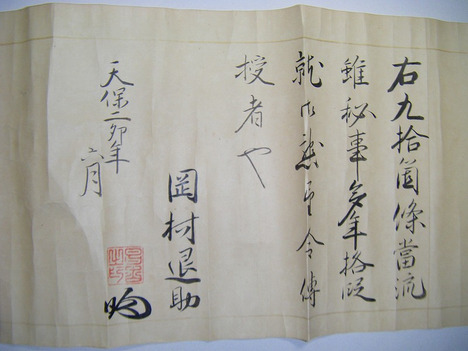 右九拾箇條當流
雖秘事多年格段
就御懇望令傳
授者也
岡村退助
天保二卯年
六月